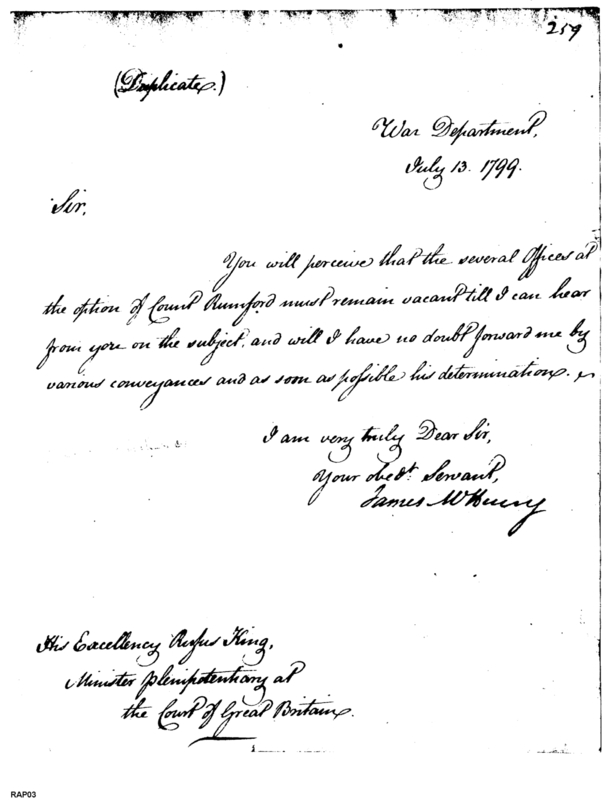 259
(Duplicate.)
War Department,
July 13. 1799.
Sir,
You will perceive that the several Offices at
the option of Count Rumford must remain vacant till I can hear
from you on the subject, and will I have no doubt forward me by
various conveyances and as soon as possible his determination.
I am very truly Dear Sir,
Your obedt. Servant,
James McHenry
His Excellency Rufus King,
Minister plenipotentiary at
the Court of Great Britain.
RAP03